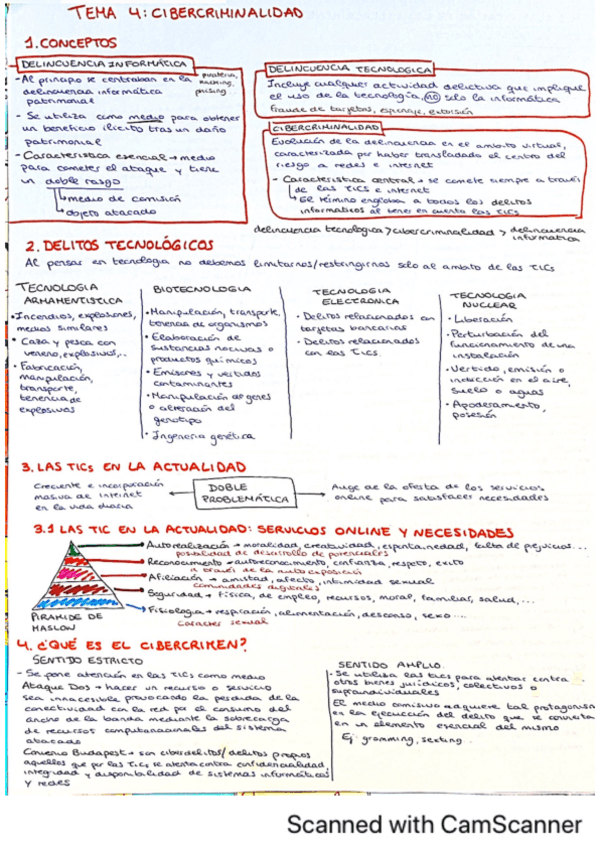 TEMA 4: CIBERCRIMINALIDAD
1. CONCEPTOS
DELINCUENCIA INFORMÁTICA
- Al principio se centraban en la
delincuencia informática
patrimonial
piratería,
hacking,
- Se utiliza como medio para obtener
un beneficio ilícito tras un daño
patrimonial
- Característica esencial → medio
para cometer el ataque y tiene
un doble rasgo
medio de comisión
objeto atacado
DELINCUENCIA TECNOLÓGICA
Incluye cualquier actividad delictiva que implique
el uso de la tecnología, no solo la informática
Fraude de tarjetas, espionaje, extorsión
CIBERCRIMINALIDAD
Evolución de la delincuencia en el ámbito virtual,
caracterizada por haber transladado el centro del
riesgo a redes e internet
- Característica central → se comete siempre a través
de las TICs e internet
El término engloba a todos los delitos
informáticos al tener en cuenta las TICs
delincuencia tecnologica > cibercriminalidad > delincuencia
informática
2. DELITOS TECNOLÓGICOS
Al pensar en tecnología no debemos limitarnos/restringirnos solo al ámbito de las TICs
TECNOLOGIA
ARMAMENTISTICA
• Incendios, explosiones,
medios similares
• Caza y pesca con
veneno, explosivos,..
• Fabricación,
manipulación,
transporte,
tenencia de
explosivos
BIOTECNOLOGIA
• Manipulación, transporte,
tenencia de organismos
• Elaboración de
sustancias nocivas o
productos químicos
• Emisiones y vertidos
contaminantes
• Manipulación de genes
o alteración del
genotipo
• Ingenieria genética
TECNOLOGIA
ELECTRONICA
• Delitos relacionados con
tarjetas bancarias
• Delitos relacionados
con las TICs
TECNOLOGIA
NUCLEAR
• Liberación
• Perturbación del
funcionamiento de una
instalación
• Vertido, emisión o
inducción en el aire,
suelo o aguas
• Apoderamiento,
posesión
3. LAS TICs EN LA ACTUALIDAD
Creciente e incorporación
masiva de internet
en la vida diaria
DOBLE
PROBLEMÁTICA
Auge de la oferta de los servicios
online para satisfacer necesidades
3.1 LAS TIC EN LA ACTUALIDAD: SERVICIOS ONLINE Y NECESIDADES
Autorealización → moralidad, creatividad, espontaneidad, falta de prejuicios...
posibilidad de desarrollo de potenciales
Reconocimiento → autoreconocimiento, confianza, respeto, exito
a través de la autoexposición
Afiliación → amistad, afecto, intimidad sexual
comunidades digitales
Seguridad → física, de empleo, recursos, moral, familiar, salud,...
Fisiología → respiración, alimentación, descanso, sexo...
Carácter sexual
PIRAMIDE DE
MASLOW
4. ¿QUÉ ES EL CIBERCRIMEN?
SENTIDO ESTRICTO
- Se pone atención en las TICs como medio
Ataque Dos → hacer un recurso o servicio
sea inaccesible provocando la perdida de la
conectividad con la red por el consumo del
ancho de la banda mediante la sobrecarga
de recursos computacionales del sistema
atacado
Convenio Budapest → son ciberdelitos/delitos propios
aquellos que por las TICs se atenta contra confidencialidad,
integridad y disponibilidad de sistemas informáticos
y redes
SENTIDO AMPLIO
- Se utiliza las tics para atentar contra
otros bienes jurídicos, colectivos o
supraindividuales
El medio comisivo adquiere tal protagonismo
en la ejecución del delito que se convierte
en un elemento esencial del mismo
Ej: grooming, sexting...
Scanned with CamScanner